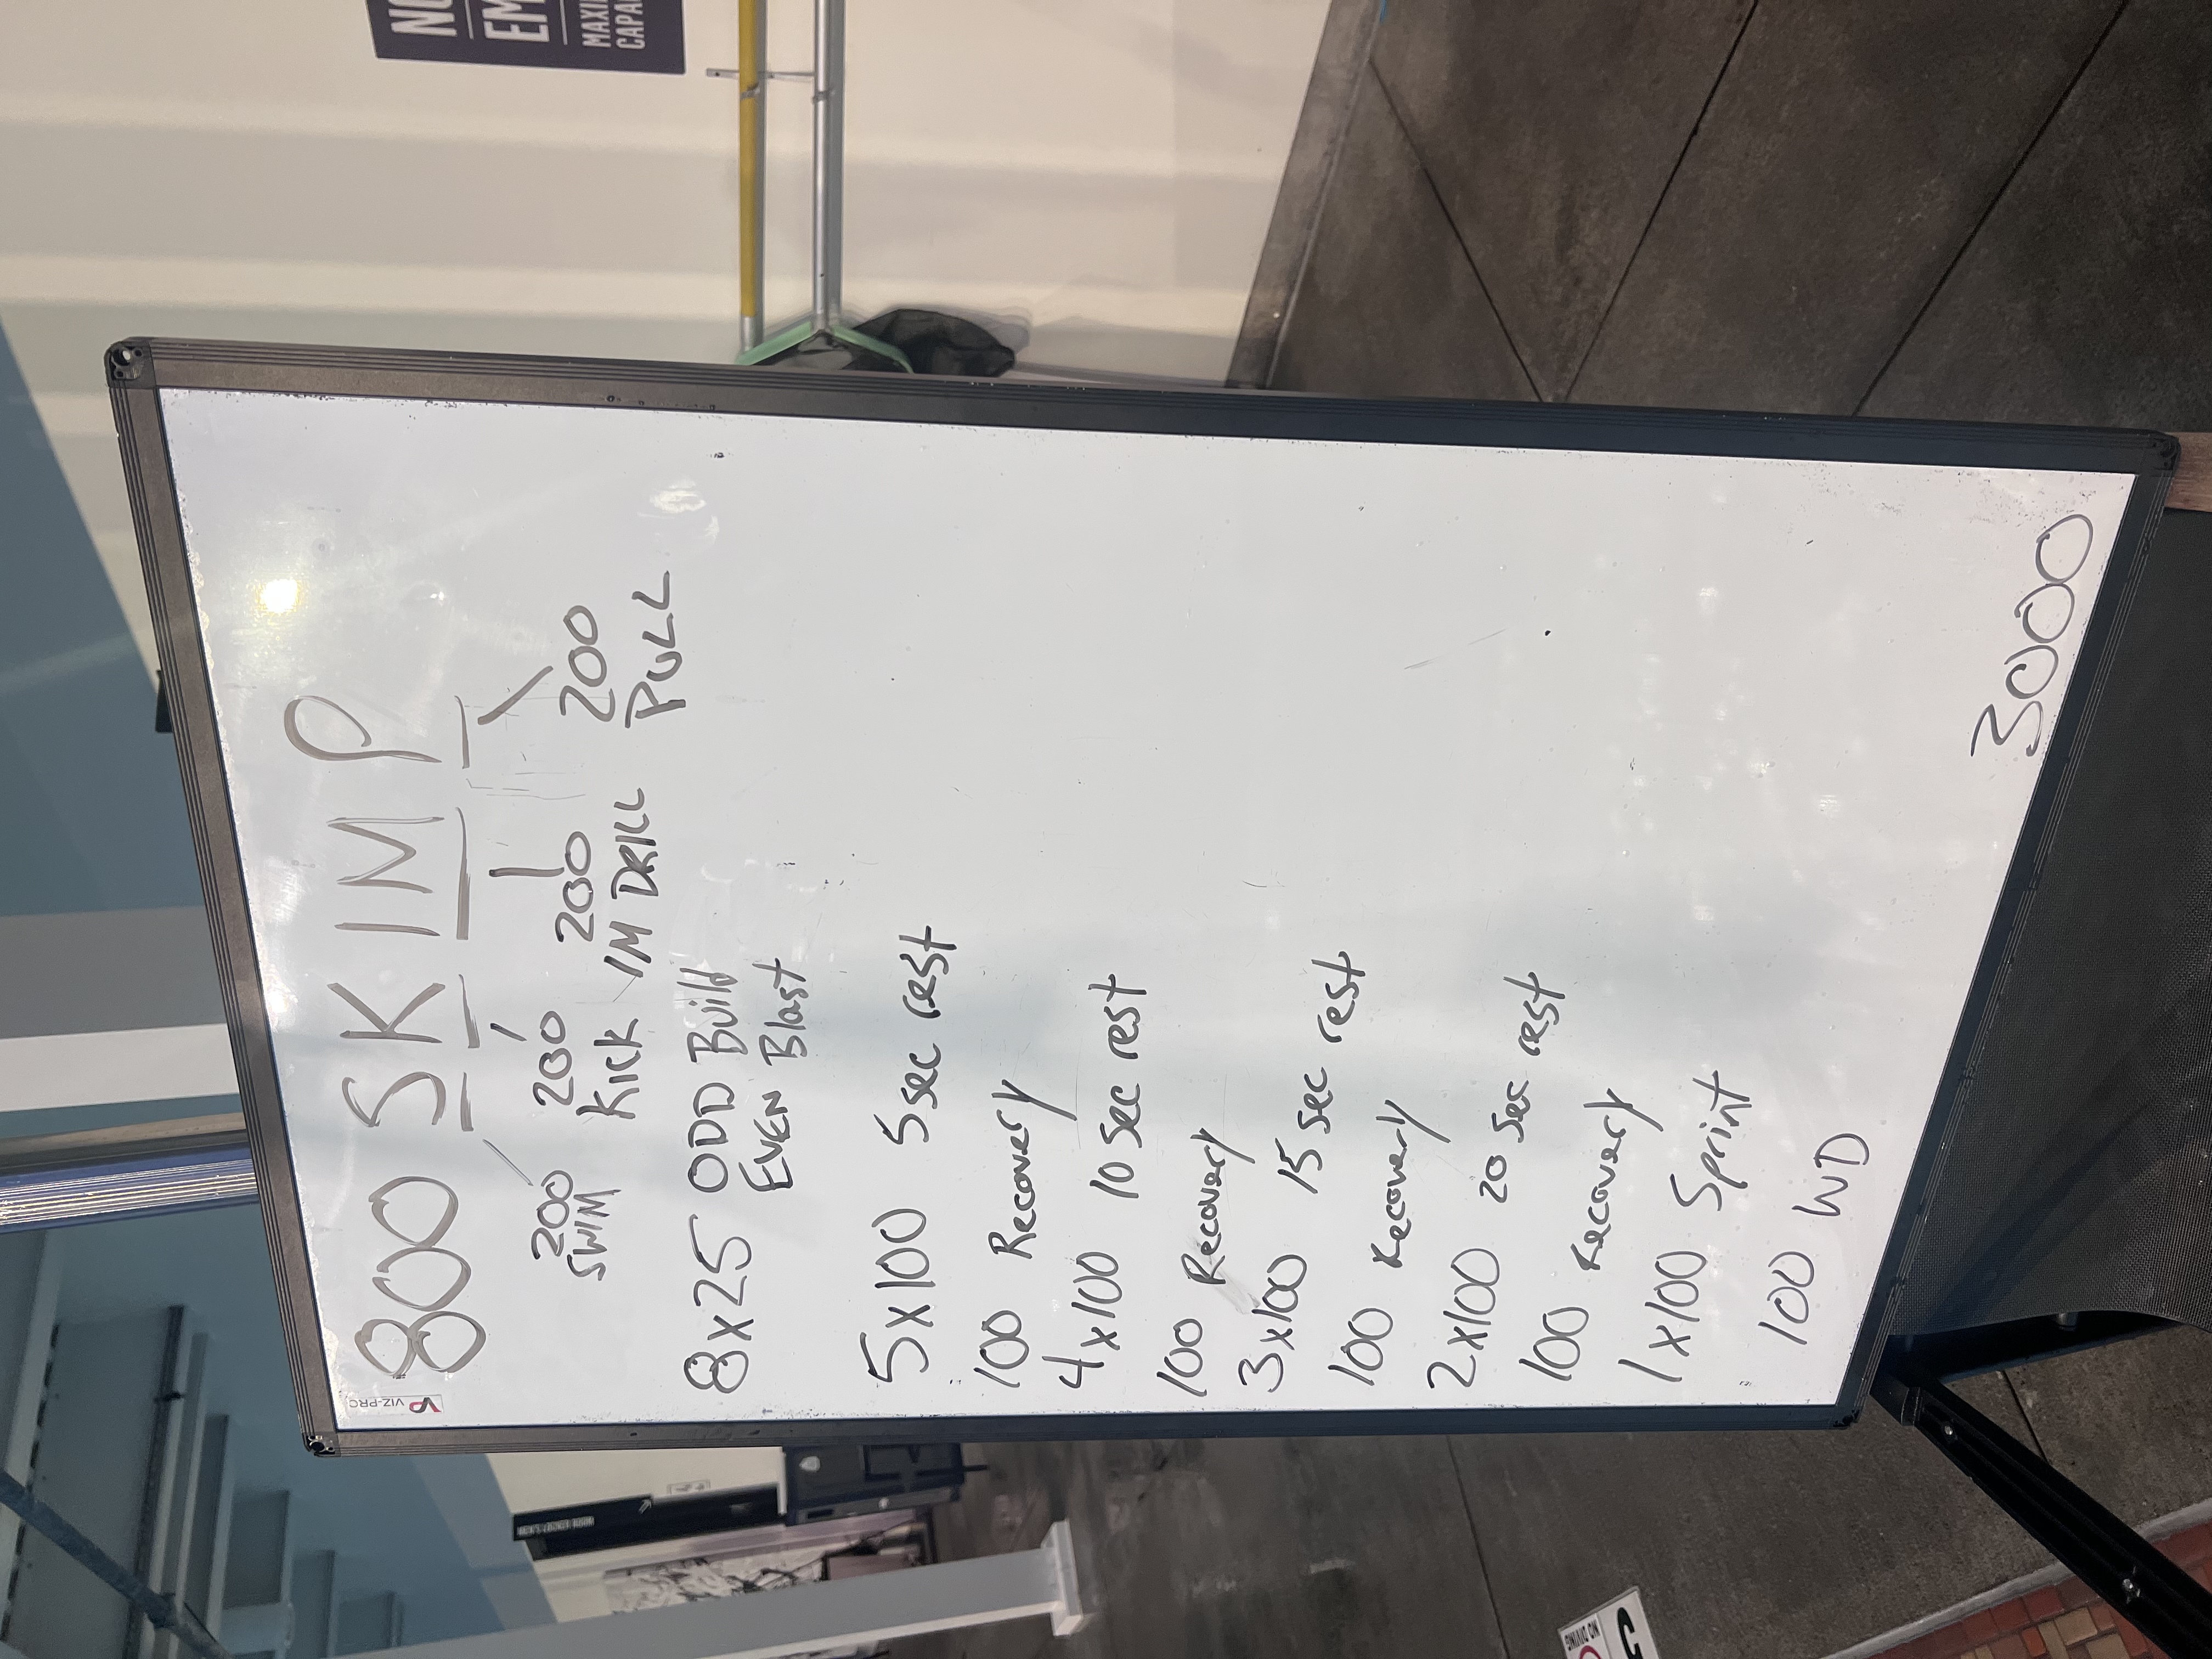 800 SKIMP
200 200 200 200
SWIM Kick IM DRILL PULL
8x25 ODD Build
EVEN Blast
5x100 5 sec rest
100 Recovery
4x100 10 sec rest
100 Recovery
3x100 15 sec rest
100 Recovery
2x100 20 sec rest
100 Recovery
1x100 Sprint
100 WD
3000
VIZ-PRO
NO DIVING